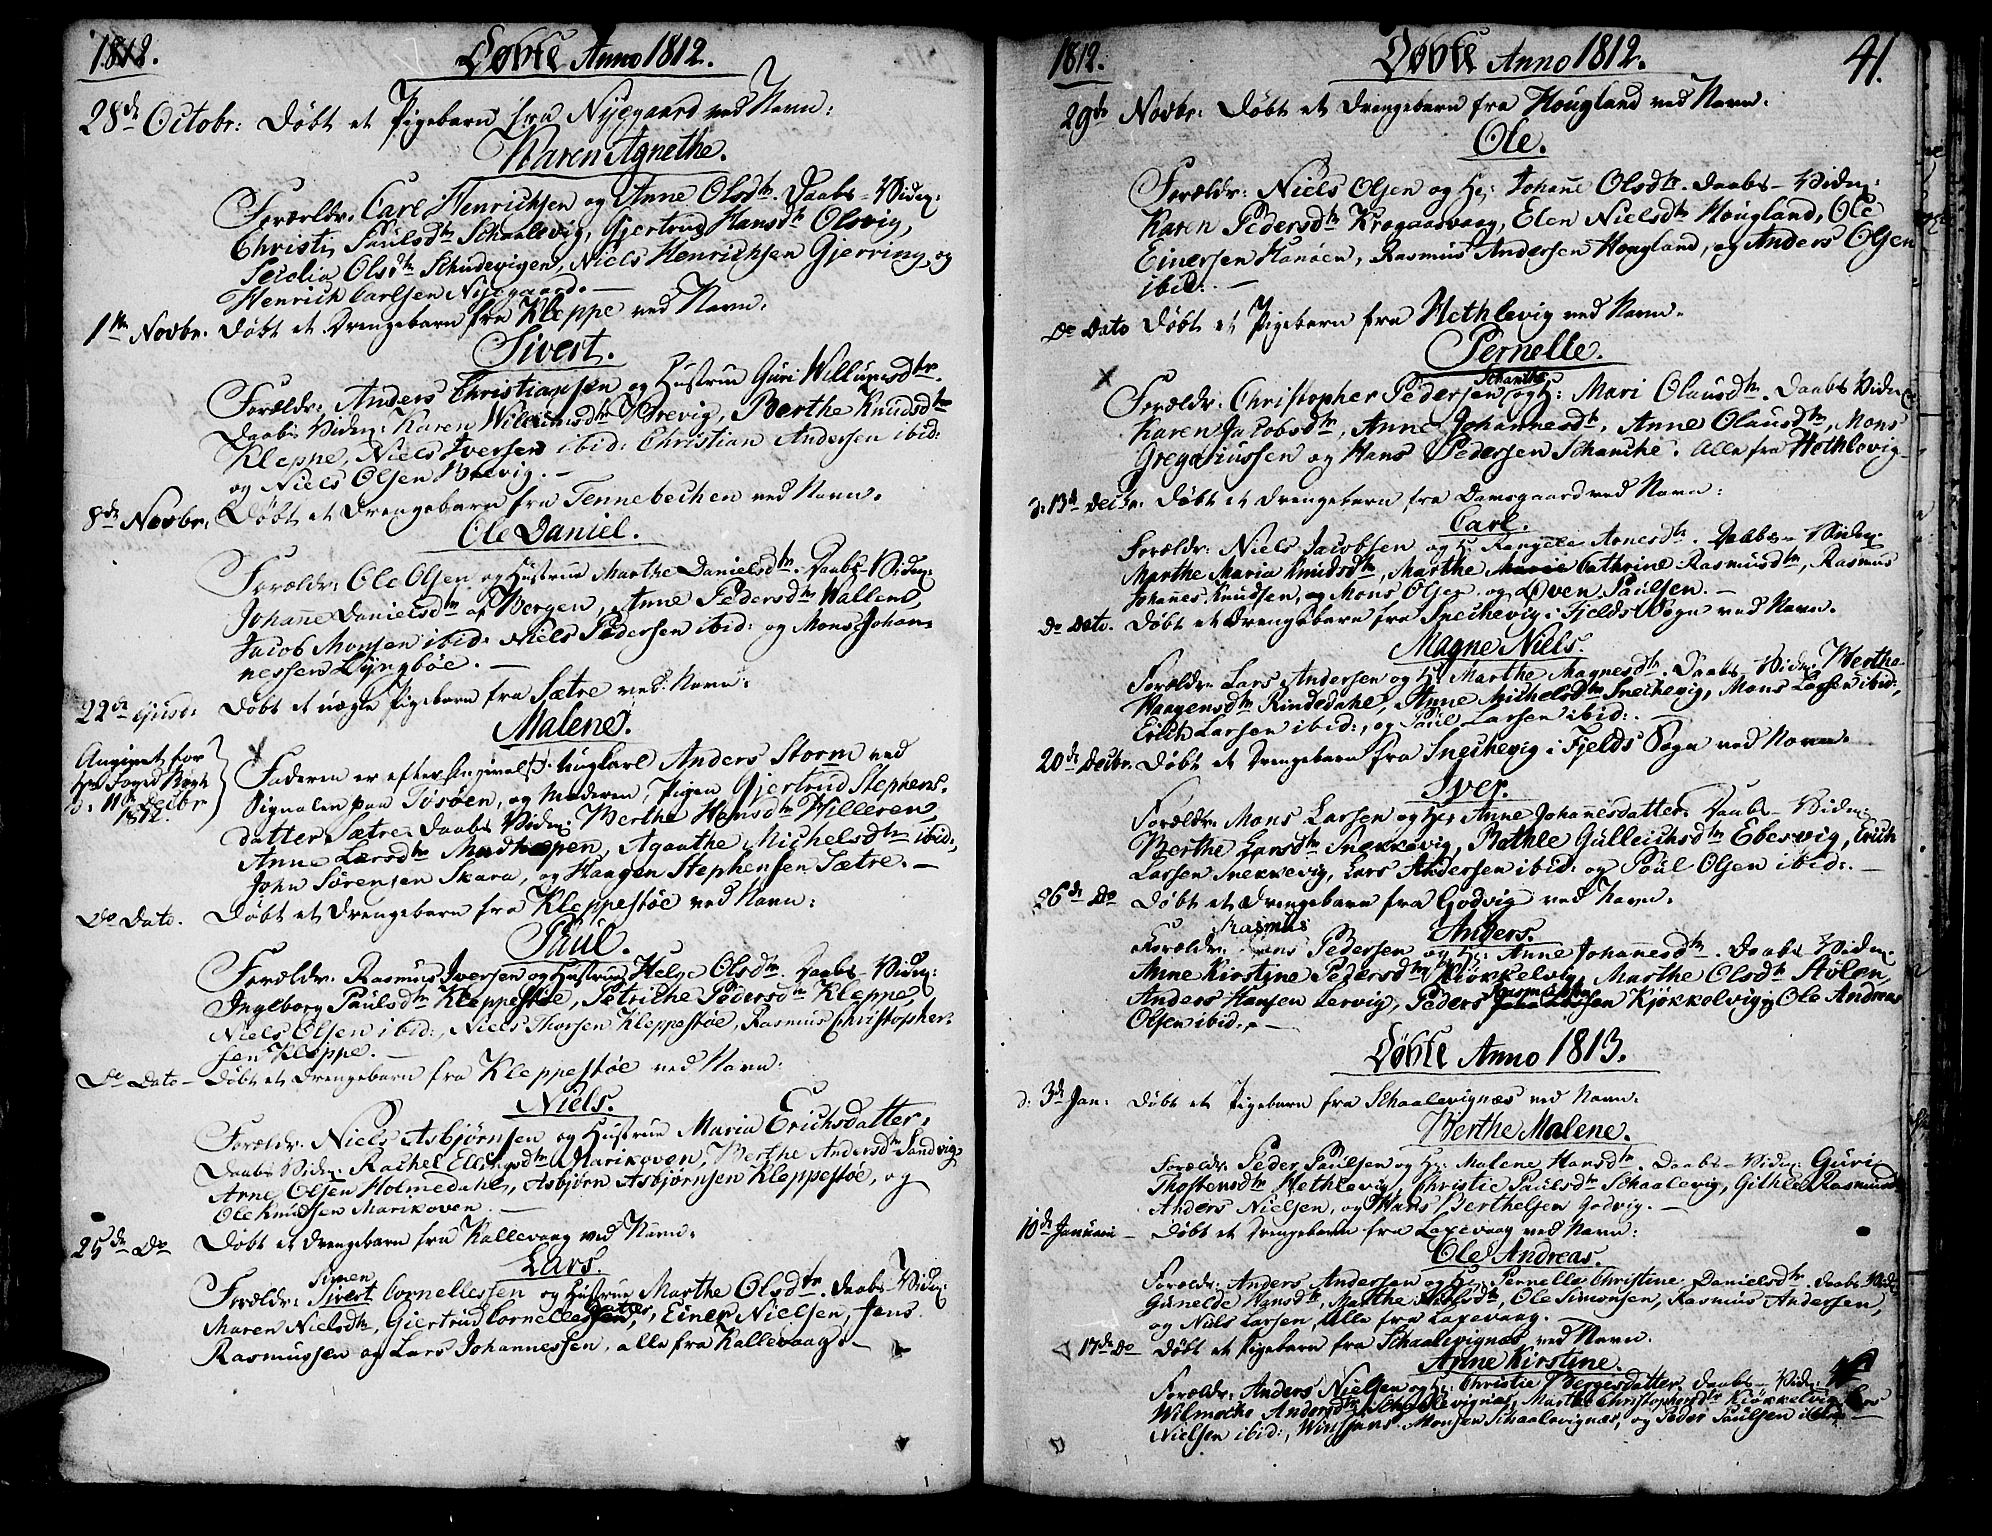 1812.
Døbte Anno 1812.
28de Octobr: Døbt et Pigebarn fra Nyegaard ved Navn:
Karen Agnethe.
Forældr: Carl Henrichsen og Anne Olsdtr. Daabs-Viden:
Christi Paulsdtr Schaalevig, Gjertrud Hansdtr Olsvig,
Secelia Olsdtr Schudevigen, Niels Henrichsen Gjerving, og
Henrich Carlsen Nyegaard.
1ste Novbr. Døbt et Drengebarn fra Kleppe ved Navn:
Sivert.
Forældr: Anders Christiansen og Hustrue Guri Willumsdtr.
Daabs Viden: Karen Willumsdtr Strevig, Berthe Knudsdtr
Kleppe, Niels Iversen ibid: Christian Andersen ibid:
og Niels Olsen Brevig.
8de Novbr: Døbt et Drengebarn fra Tennebechen ved Navn.
Ole Daniel.
Forældr: Ole Olsen og Hustrue Marthe Danielsdtr. Daabs-Viden:
Johanne Danielsdtr af Bergen, Anne Pedersdtr Wallen,
Jacob Monsen ibid: Niels Pedersen ibid: og Mons Johan-
nessen Lyngbøe.
22de Døbt et uægte Pigebarn fra Sætre ved Navn:
Malene.
Angivet for
Hr Foged
d: 11te Decbr
1812.
Faderen er efter Angivelse Ungkarl Anders Storm ved
Signalen paa Tøsøen, og Moderen, Pigen Gjertrud Stephens-
datter Sætre. Daabs Viden: Berthe Hansdtr Willeren,
Anne Larsdtr Madhopen, Agaathe Michelsdtr ibid:,
John Sørensen Skara, og Haagen Stephensen Sætre.
Do Dato. Døbt et Drengebarn fra Kleppestøe ved Navn:
Paul.
Forældr: Rasmus Iversen og Hustrue Helge Olsdtr. Daabs-Viden:
Ingeborg Paulsdtr Kleppestøe, Petriche Pedersdtr Kleppe,
Niels Olsen ibid:, Niels Thorsen Kleppestøe, Rasmus Christopher-
sen Kleppe.
Do Dato- Døbt et Drengebarn fra Kleppestøe ved Navn:
Niels.
Forældr: Niels Asbjørnsen og Hustrue Maria Erichsdatter.
Daabs Viden: Rachel Ellingsdtr Marikoven, Berthe Andersdtr Sandvig
Arne Olsen Holmedahl, Asbjørn Asbjørnsen Kleppestøe, og
Ole Knudsen Marikoven.
25de Do Døbt et Drengebarn fra Kallevaag ved Navn:
Lars.
Simen
Forældr: Sivert Cornellessen og Hustrue Marthe Olsdtr. Daabs-Viden:
Maren Nielsdtr, Giertrud Cornelles datter, Einer Nielsen, Jens
Rasmussen og Lars Johannessen, alle fra Kallevaag.
1812.
Døbte Anno 1812.
41.
29de Novbr: Døbt et Drengebarn fra Hougland ved Navn.
Ole.
Forældr: Niels Olsen og H: Johanne Olsdtr. Daabs-Viden:
Karen Pedersdtr Krogaasvaag, Elen Nielsdtr Hougland, Ole
Einersen Hanøen, Rasmus Andersen Hougland, og Anders Olsen
ibid:
Do Dato Døbt et Pigebarn fra Hethlevig ved Navn.
Pernelle.
Schanche
Forældr: Christopher Pedersen og H: Mari Olausdtr. Daabs Viden
Karen Jacobsdtr, Anne Johannesdtr, Anne Olausdtr, Mons
Gregoriussen og Hans Pedersen Schanche. Alle fra Hethlevig
d: 13de Decbr: Døbt et Drengebarn fra Damsgaard ved Navn:
Carl.
Forældr: Niels Jacobsen og H: Rangele Arnesdtr. Daabs-Viden:
Marthe Maria Knudsdtr, Marthe Cathrine Rasmusdtr, Rasmus
Johannes Knudsen, og Mons Olsen, og Even Paulsen.
Do Dato. Døbt et Drengebarn fra Sneihevig i Fjelds Sogn ved Navn.
Magne Niels.
Forældr: Lars Andersen og H: Marthe Magnesdtr. Daabs-Viden: Berthe
Haagensdtr Rindedahl, Anne Michelsdtr Sneihevig, Mons Larsen ibid:,
Erich Larsen ibid:, og Paul Larsen ibid:
20de Decbr. Døbt et Drengebarn fra Sneihevig i Fjelds Sogn ved Navn.
Iver.
Forældr: Mons Larsen og H: Anne Johannesdatter: Daabs-Viden:
Berthe Larsdtr Snekkevig, Bethle Gulleichsdtr Ebesvig, Erich
Larsen Snekkevig, Lars Andersen ibid: og Poul Olsen ibid:
26de Do Døbt et Drengebarn fra Godvig ved Navn.
Anders.
Rasmus
Forældr: Pedersen og H: Anne Johannesdtr. Daabs Viden:
Anne Kirstine Pedersdtr Kiøkkelvig, Marthe Olsdtr Stølen,
Anders Hansen Lervig, Peders Rasmussen Kjøkkolvig, Ole Andreas
Olsen ibid:
Døbte Anno 1813.
d: 3de Jan: Døbt et Pigebarn fra Schaalevignæs ved Navn.
Berthe Malene.
Forældr: Peder Paulsen og H: Malene Hansdtr. Daabs-Viden: Guri
Thostensdtr Hethlevig, Christie Paulsdtr Schaalevig, Githle Rasmusd
Anders Nielsen, og Hans Berthelsen Godvig.
10de Januari - Døbt et Drengebarn fra Laxevaag ved Navn:
Ole Andreas.
Forældr: Anders Andersen og H: Pernelle Christine Danielsdtr. Daabs-Vid
Gunelde Hansdtr, Marthe Nielsdtr, Ole Simonsen, Rasmus Andersen,
og Niels Larsen, Alle fra Laxevaag.
17de Do Døbt et Pigebarn fra Schaalevignæs ved Navn.
Anne Kirstine.
Forældr: Anders Nielsen og H: Christie Børgesdatter. Daabs-Viden:
Wilmoche Andersdtr Schaalevignæs, Marthe Christophersdtr Kiøkkelvig
Nielsen ibid:, Monsen Schaalevignæs, og Peder Paulsen ibid: